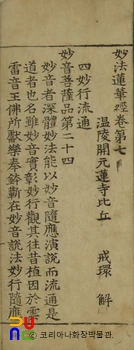 妙法蓮華經卷第七
溫陵開元蓮寺比丘 戒環 解
四妙行流通
妙音菩薩品第二十四
妙音者深體妙法能以妙音隨應演說而流通是
道者也名雖妙音實彰妙行觀其往昔植因於雲
雷音王佛所獻樂奉鉢斷在妙音說法妙行隨應
코리아나화장박물관